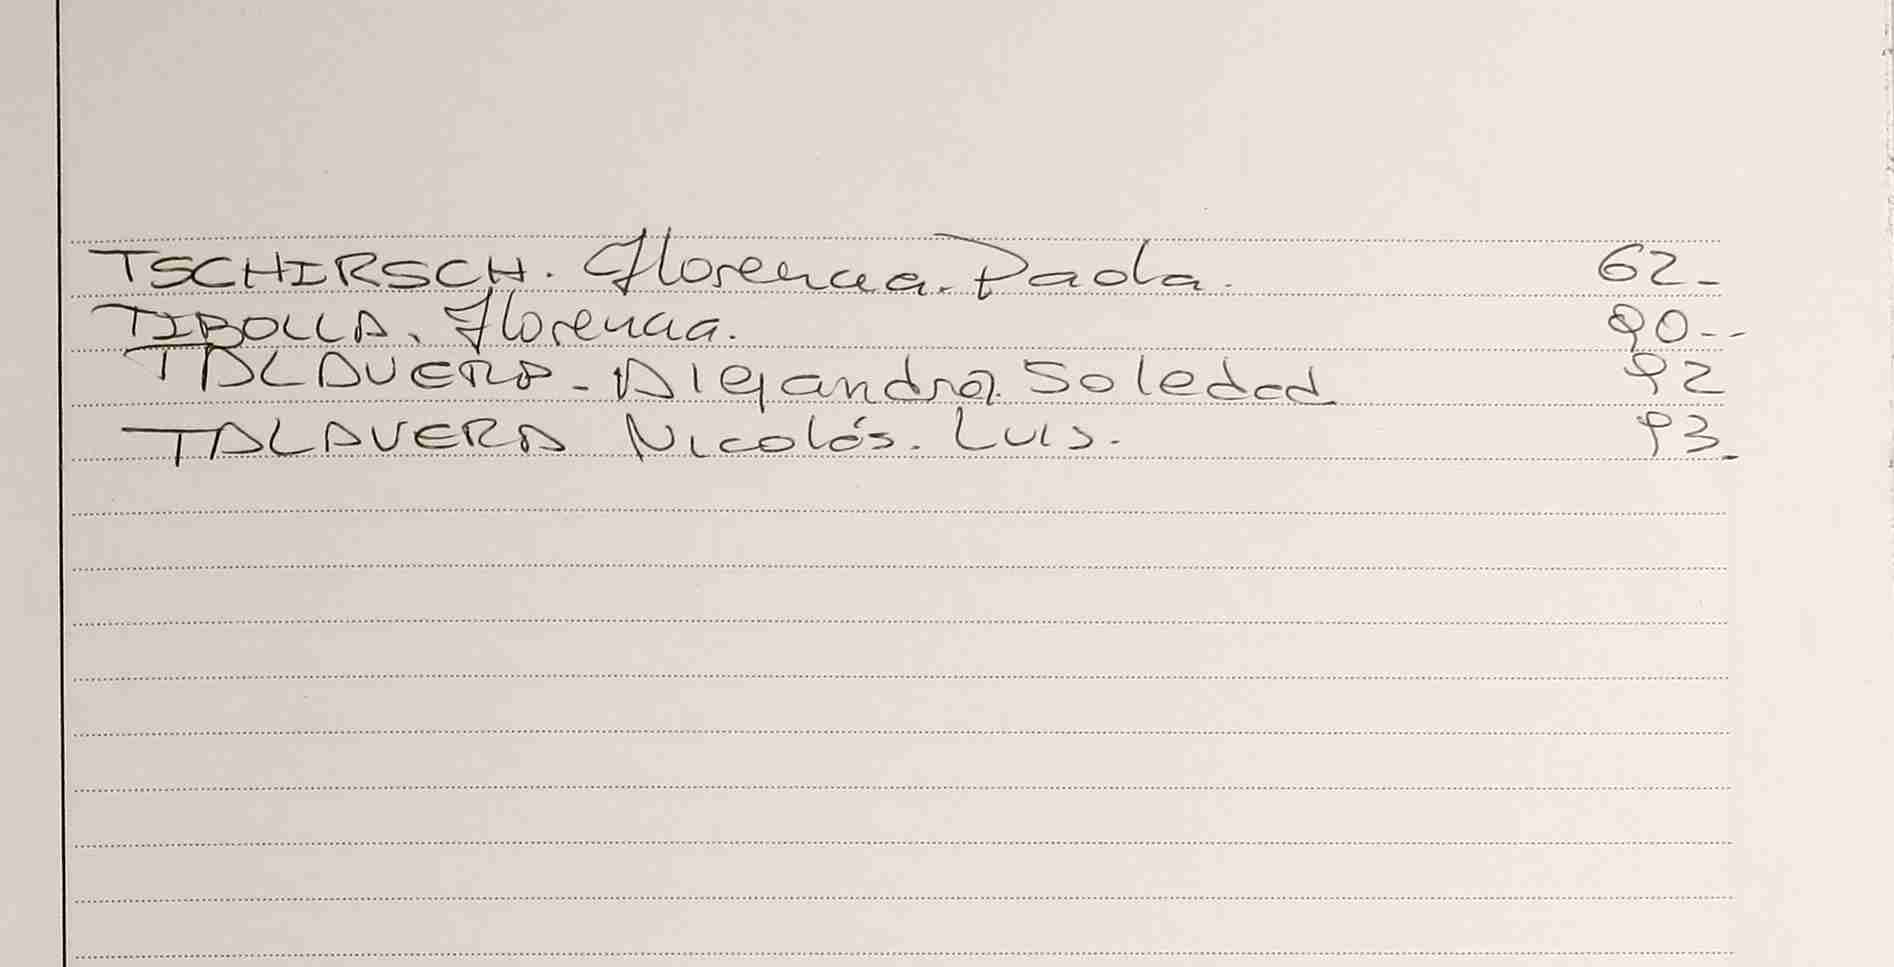 TSCHIRSCH. Florencia. Paola. 62_
TIBOLLA. Florencia. 90--
TALAVERA - Alejandra Soledad 92
TALAVERA Nicolás. Luis. 93_